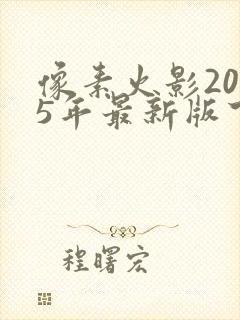 像素火影20
5年最新版
程曙宏